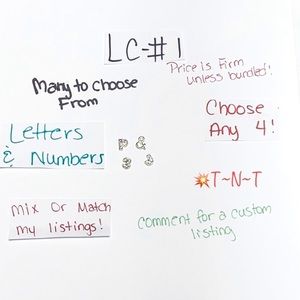 LC-#1
Price is Firm
unless bundled!
Many to choose
From
Choose
Any 4!
Letters
& Numbers
P &
3 3
💥T~N~T
Mix Or Match
my listings!
Comment for a custom
listing